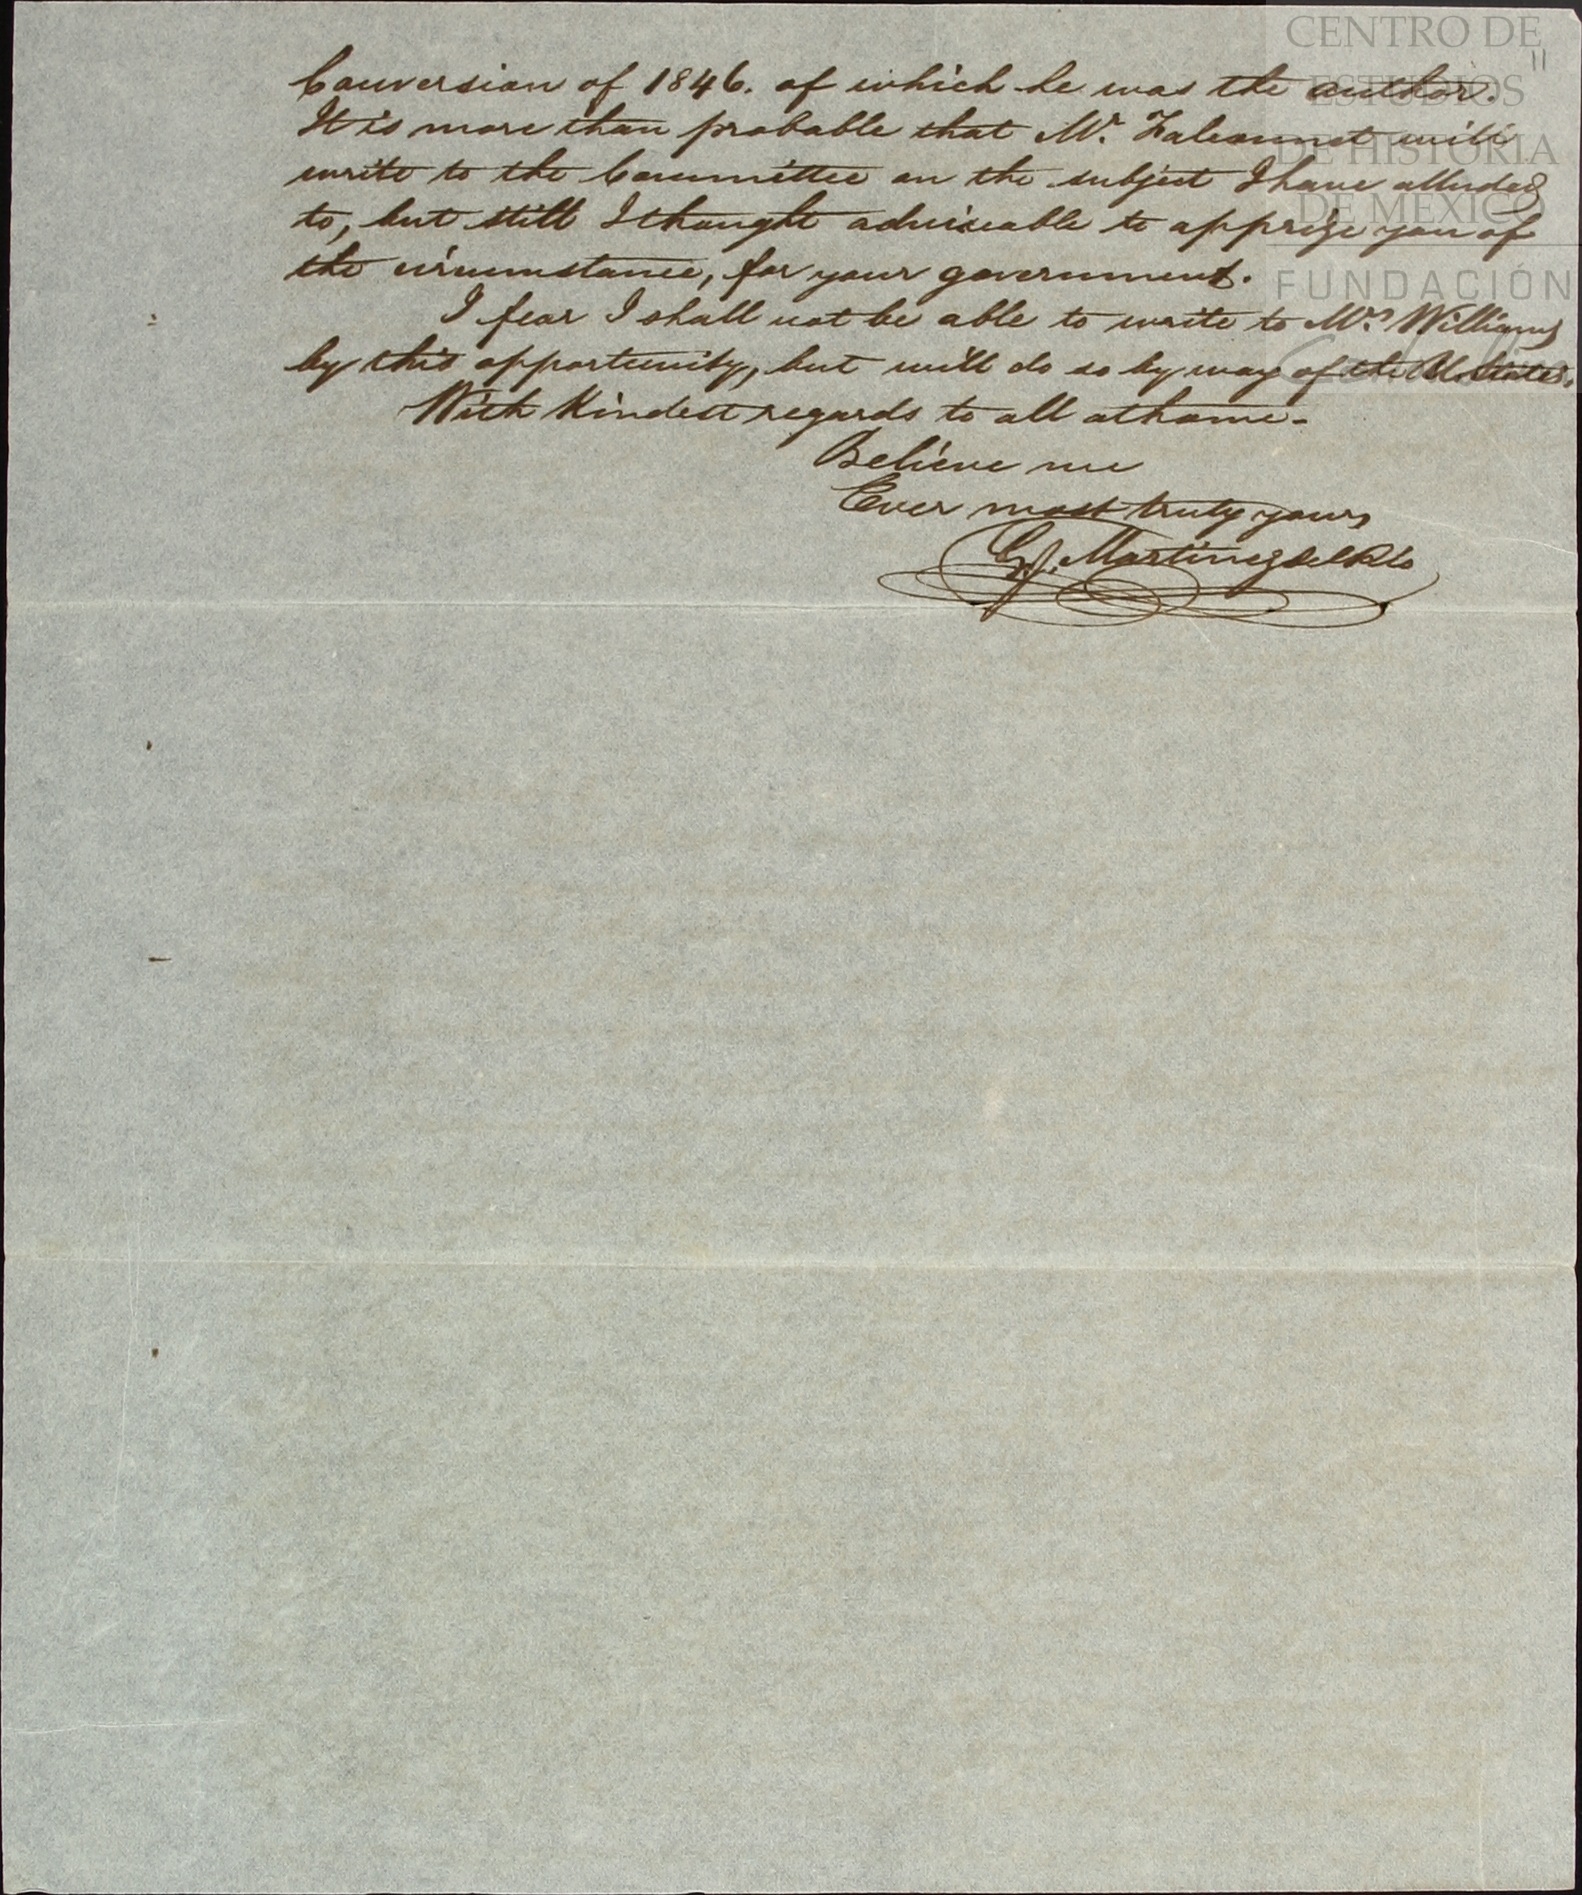 CENTRO DE
ESTUDIOS
DE HISTORIA
DE MEXICO
FUNDACIÓN
Conversion of 1846. of which he was the author.
It is more than probable that Mr. Falconnet will
write to the Committee on the subject I have alluded
to, but still I thought adviseable to apprize you of
the circumstance, for your government.
I fear I shall not be able to write to Mrs Williams
by this opportunity, but will do so by way of the U. States.
With Kindest regards to all at home.
Believe me
Ever most truly yours
G. J. Martinez del Rio